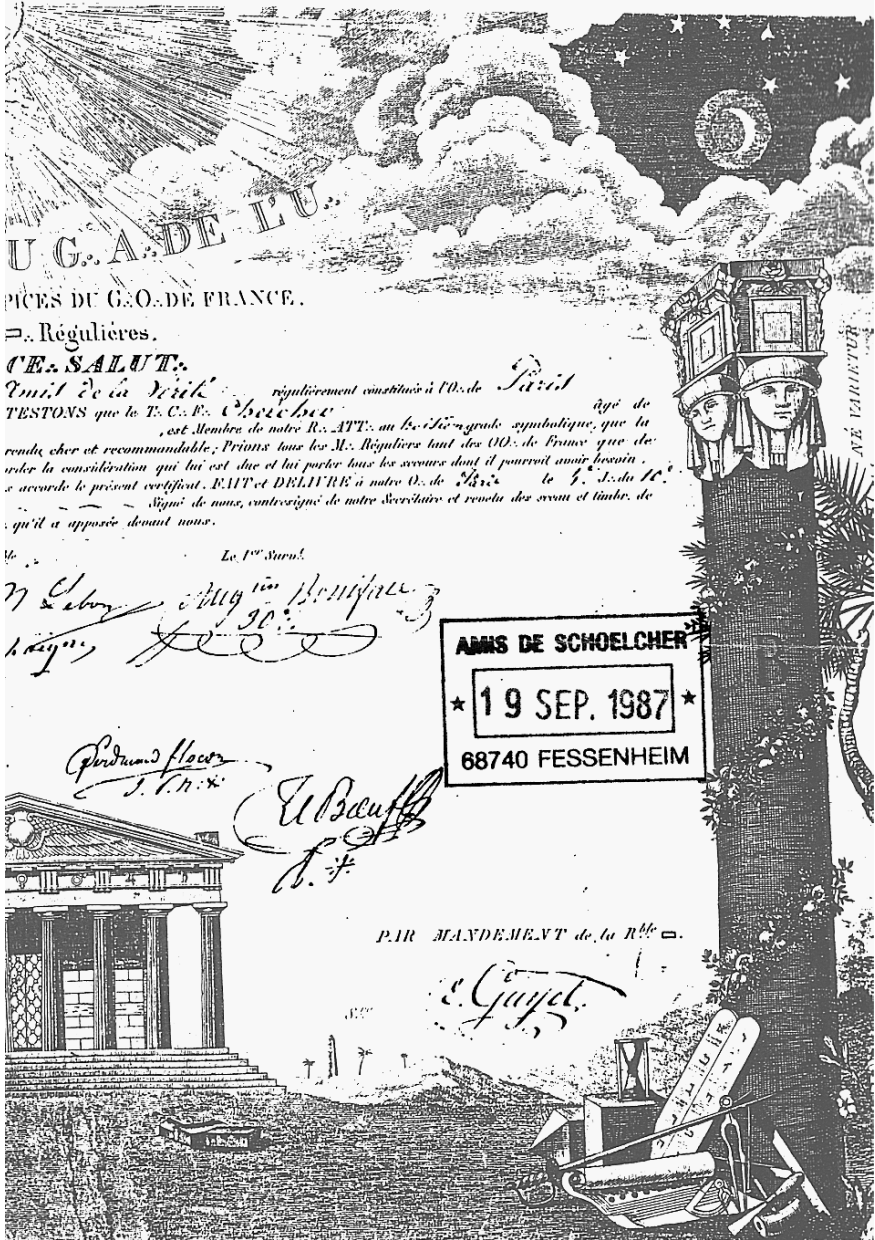 U G∴ A∴ DE L'U∴
PICES DU G∴O∴ DE FRANCE.
▭∴ Régulières.
CE∴ SALUT∴
Amis de la Vérité régulièrement constituée à l'O∴ de Paris
TESTONS que le T∴ C∴ F∴ âgé de
, est Membre de notre R∴ ATT∴ au grade symbolique, que la
rendu cher et recommandable; Prions tous les M∴ Réguliers tant des OO∴ de France que de
order la considération qui lui est due et lui porter tous les secours dont il pourroit avoir besoin.
s accorde le présent certificat. FAIT et DÉLIVRÉ à notre O∴ de Paris le 5e J∴ du 10e
Signé de nous, contresigné de notre Secrétaire et revetu des sceau et timbre de
qu'il a apposée devant nous.
ble
Le 1er Survt.
Lebon
Augtin Boniface
30e∴
AMIS DE SCHOELCHER
★ 19 SEP. 1987 ★
68740 FESSENHEIM
Ferdinand flocon
Le Bœuf
PAR MANDEMENT de la Rble ▭.
E. Guyot.
NÉ VARIETUR
B